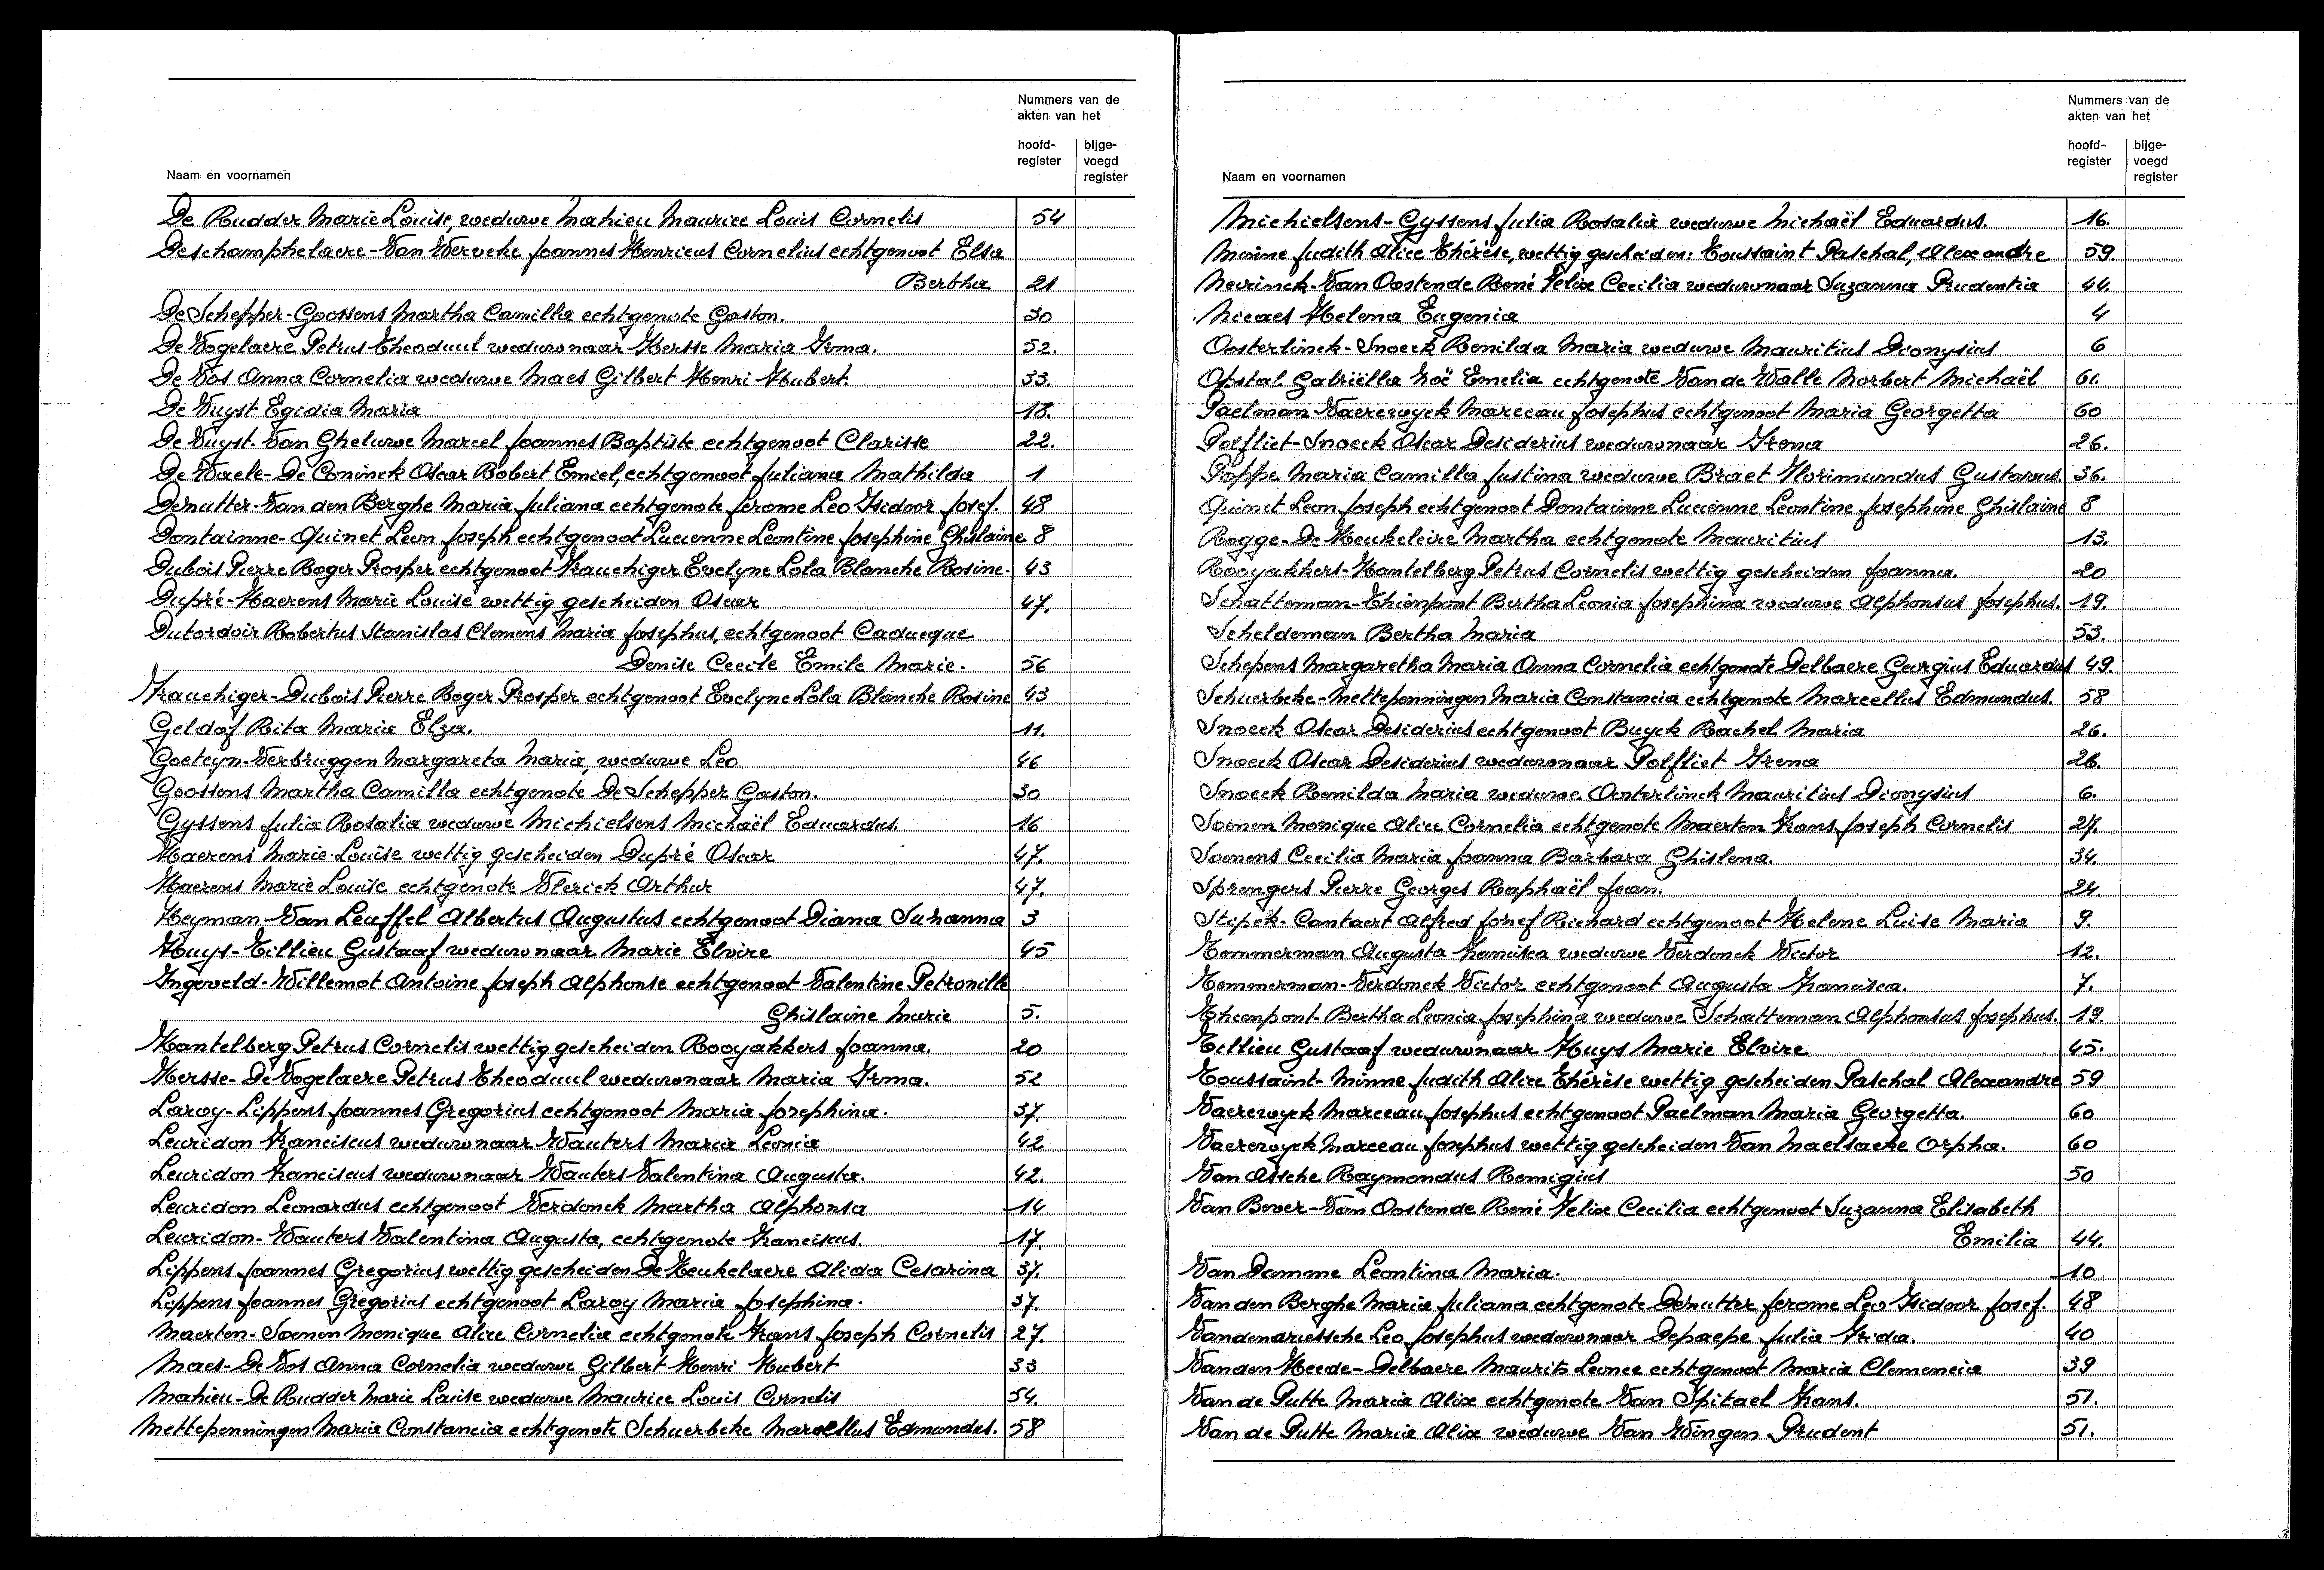 Nummers van de
akten van het
hoofd-
register
bijge-
voegd
register
Naam en voornamen
De Rudder Marie Louise, weduwe Mahieu Maurice Louis Cornelis 54
Deschamphelaere-Van Werveke Joannes Henricus Cornelius echtgenoot Elsa
Bertha 21
De Schepper-Goossens Martha Camilla echtgenote Gaston. 30
De Vogelaere Petrus Theoduul weduwnaar Hersse Maria Irma. 52.
De Vos Anna Cornelia weduwe Maes Gilbert Henri Hubert. 33.
De Vuyst Egidia Maria 18.
De Vuyst-Van Gheluwe Marcel Joannes Baptiste echtgenoot Clarisse 22.
De Waele-De Coninck Oscar Robert Emiel, echtgenoot Juliana Mathilda 1
Demutter-Van den Berghe Maria Juliana echtgenote Jerome Leo Isidoor Josef. 48
Dontainne-Quinet Leon Joseph echtgenoot Lucienne Leontine Josephine Ghislaine 8
Dubois Pierre Roger Prosper echtgenoot Frauchiger Evelyne Lola Blanche Rosine. 43
Dupré-Haerens Marie Louise wettig gescheiden Oscar 47.
Dutordoir Robertus Stanislas Clemens Maria Josephus echtgenoot Caducque
Denise Cecile Emile Marie. 56
Frauchiger-Dubois Pierre Roger Prosper echtgenoot Evelyne Lola Blanche Rosine 43
Geldof Rita Maria Elza. 11.
Goeteyn-Verbruggen Margareta Maria, weduwe Leo 46
Goossens Martha Camilla echtgenote De Schepper Gaston. 30
Gyssens Julia Rosalia weduwe Michielsens Michaël Eduardus. 16
Haerens Marie Louise wettig gescheiden Dupré Oscar 47.
Haerens Marie Louise echtgenote Vlerick Arthur 47.
Heyman-Van Leuffel Albertus Augustus echtgenoot Diana Suzanna 3
Huys-Tillieu Gustaaf weduwnaar Marie Elvire 45
Ingeveld-Willemot Antoine Joseph Alphonse echtgenoot Valentine Petronille
Ghislaine Marie 5.
Kantelberg Petrus Cornelis wettig gescheiden Rooyakkers Joanna. 20
Hersse-De Vogelaere Petrus Theoduul weduwnaar Maria Irma. 52
Laroy-Lippens Joannes Gregorius echtgenoot Maria Josephina. 37.
Leuridon Franciscus weduwnaar Wauters Maria Leonia 42
Leuridon Franciscus weduwnaar Wauters Valentina Augusta. 42.
Leuridon Leonardus echtgenoot Verdonck Martha Alphonsa 14
Leuridon-Wauters Valentina Augusta, echtgenote Franciscus. 17.
Lippens Joannes Gregorius wettig gescheiden De Keukelaere Alida Cesarina 37.
Lippens Joannes Gregorius echtgenoot Laroy Maria Josephina. 37.
Maerten-Soenen Monique Alice Cornelia echtgenote Frans Joseph Cornelis 27.
Maes-De Vos Anna Cornelia weduwe Gilbert Henri Hubert 33
Mahieu-De Rudder Marie Louise weduwe Maurice Louis Cornelis 54.
Mettepenningen Maria Constancia echtgenote Schuerbeke Marcellus Edmundus. 58
Nummers van de
akten van het
hoofd-
register
bijge-
voegd
register
Naam en voornamen
Michielsens-Gyssens Julia Rosalia weduwe Michaël Eduardus. 16.
Minne Judith Alice Thérèse, wettig gescheiden: Toussaint Paschal, Alexandre 59.
Neirinck-Van Oostende René Felix Cecilia weduwnaar Suzanna Prudentia 44.
Nicaes Helena Eugenia 4
Oosterlinck-Snoeck Romilda Maria weduwe Mauritius Dionysius 6
Opstal Gabriëlla Zoë Emelia echtgenote Van de Walle Norbert Michaël 61.
Paelman-Vaerewyck Marceau Josephus echtgenoot Maria Georgetta 60
Polfliet-Snoeck Oscar Desiderius weduwnaar Irena 26.
Poppe Maria Camilla Justina weduwe Braet Florimundus Gustavus. 36.
Quinet Leon Joseph echtgenoot Dontainne Lucienne Leontine Josephine Ghislaine 8
Rogge-De Keukeleire Martha echtgenote Mauritius 13.
Rooyakkers-Kantelberg Petrus Cornelis wettig gescheiden Joanna. 20
Schatteman-Thienpont Bertha Leonia Josephina weduwe Alphonsus Josephus. 19.
Scheldeman Bertha Maria 53.
Schepens Margaretha Maria Anna Cornelia echtgenote Delbaere Georgius Eduardus 49.
Schuerbeke-Mettepenningen Maria Constancia echtgenote Marcellus Edmundus. 58
Snoeck Oscar Desiderius echtgenoot Buyck Rachel Maria 26.
Snoeck Oscar Desiderius weduwnaar Polfliet Irena 26.
Snoeck Romilda Maria weduwe Oosterlinck Mauritius Dionysius 6.
Soenen Monique Alice Cornelia echtgenote Maerten Frans Joseph Cornelis 27.
Soenens Cecilia Maria Joanna Barbara Ghislena. 34.
Sprengers Pierre Georges Raphaël Jean. 24.
Stipek-Cantaert Alfred Josef Richard echtgenoot Helene Luise Maria 9.
Temmerman Augusta Francisca weduwe Verdonck Victor 12.
Temmerman-Verdonck Victor echtgenoot Augusta Francisca. 7.
Thienpont Bertha Leonia Josephina weduwe Schatteman Alphonsus Josephus. 19.
Tillieu Gustaaf weduwnaar Huys Marie Elvire 45.
Toussaint-Minne Judith Alice Thérèse wettig gescheiden Paschal Alexandre 59
Vaerewyck Marceau Josephus echtgenoot Paelman Maria Georgetta. 60
Vaerewyck Marceau Josephus wettig gescheiden Van Maelsaeke Orpha. 60
Van Assche Raymondus Remigius 50
Van Bever-Van Oostende René Felix Cecilia echtgenoot Suzanna Elisabeth
Emilia 44.
Van Damme Leontina Maria. 10
Van den Berghe Maria Juliana echtgenote Demutter Jerome Leo Isidoor Josef. 48
Vandendriessche Leo Josephus weduwnaar Depaepe Julia Frida. 40
Vanden Heede-Delbaere Maurits Leonce echtgenoot Maria Clemencia 39
Van de Putte Maria Alix echtgenote Van Spitael Frans. 51.
Van de Putte Maria Alix weduwe Van Wingen Prudent 51.